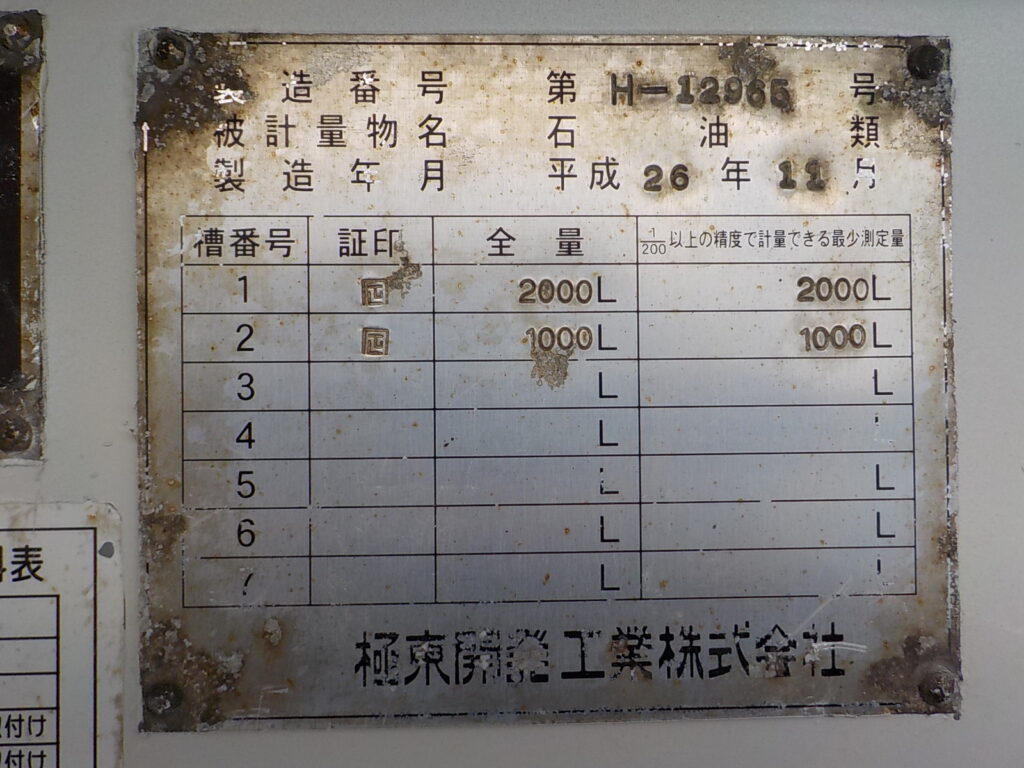 製造番号 第 H-12965 号
被計量物名 石油類
製造年月 平成 26 年 11 月
槽番号 証印 全量 1/200以上の精度で計量できる最少測定量
1 2000L 2000L
2 1000L 1000L
3 L L
4 L
5 L L
6 L L
7 L
極東開発工業株式会社
表
付け
付け